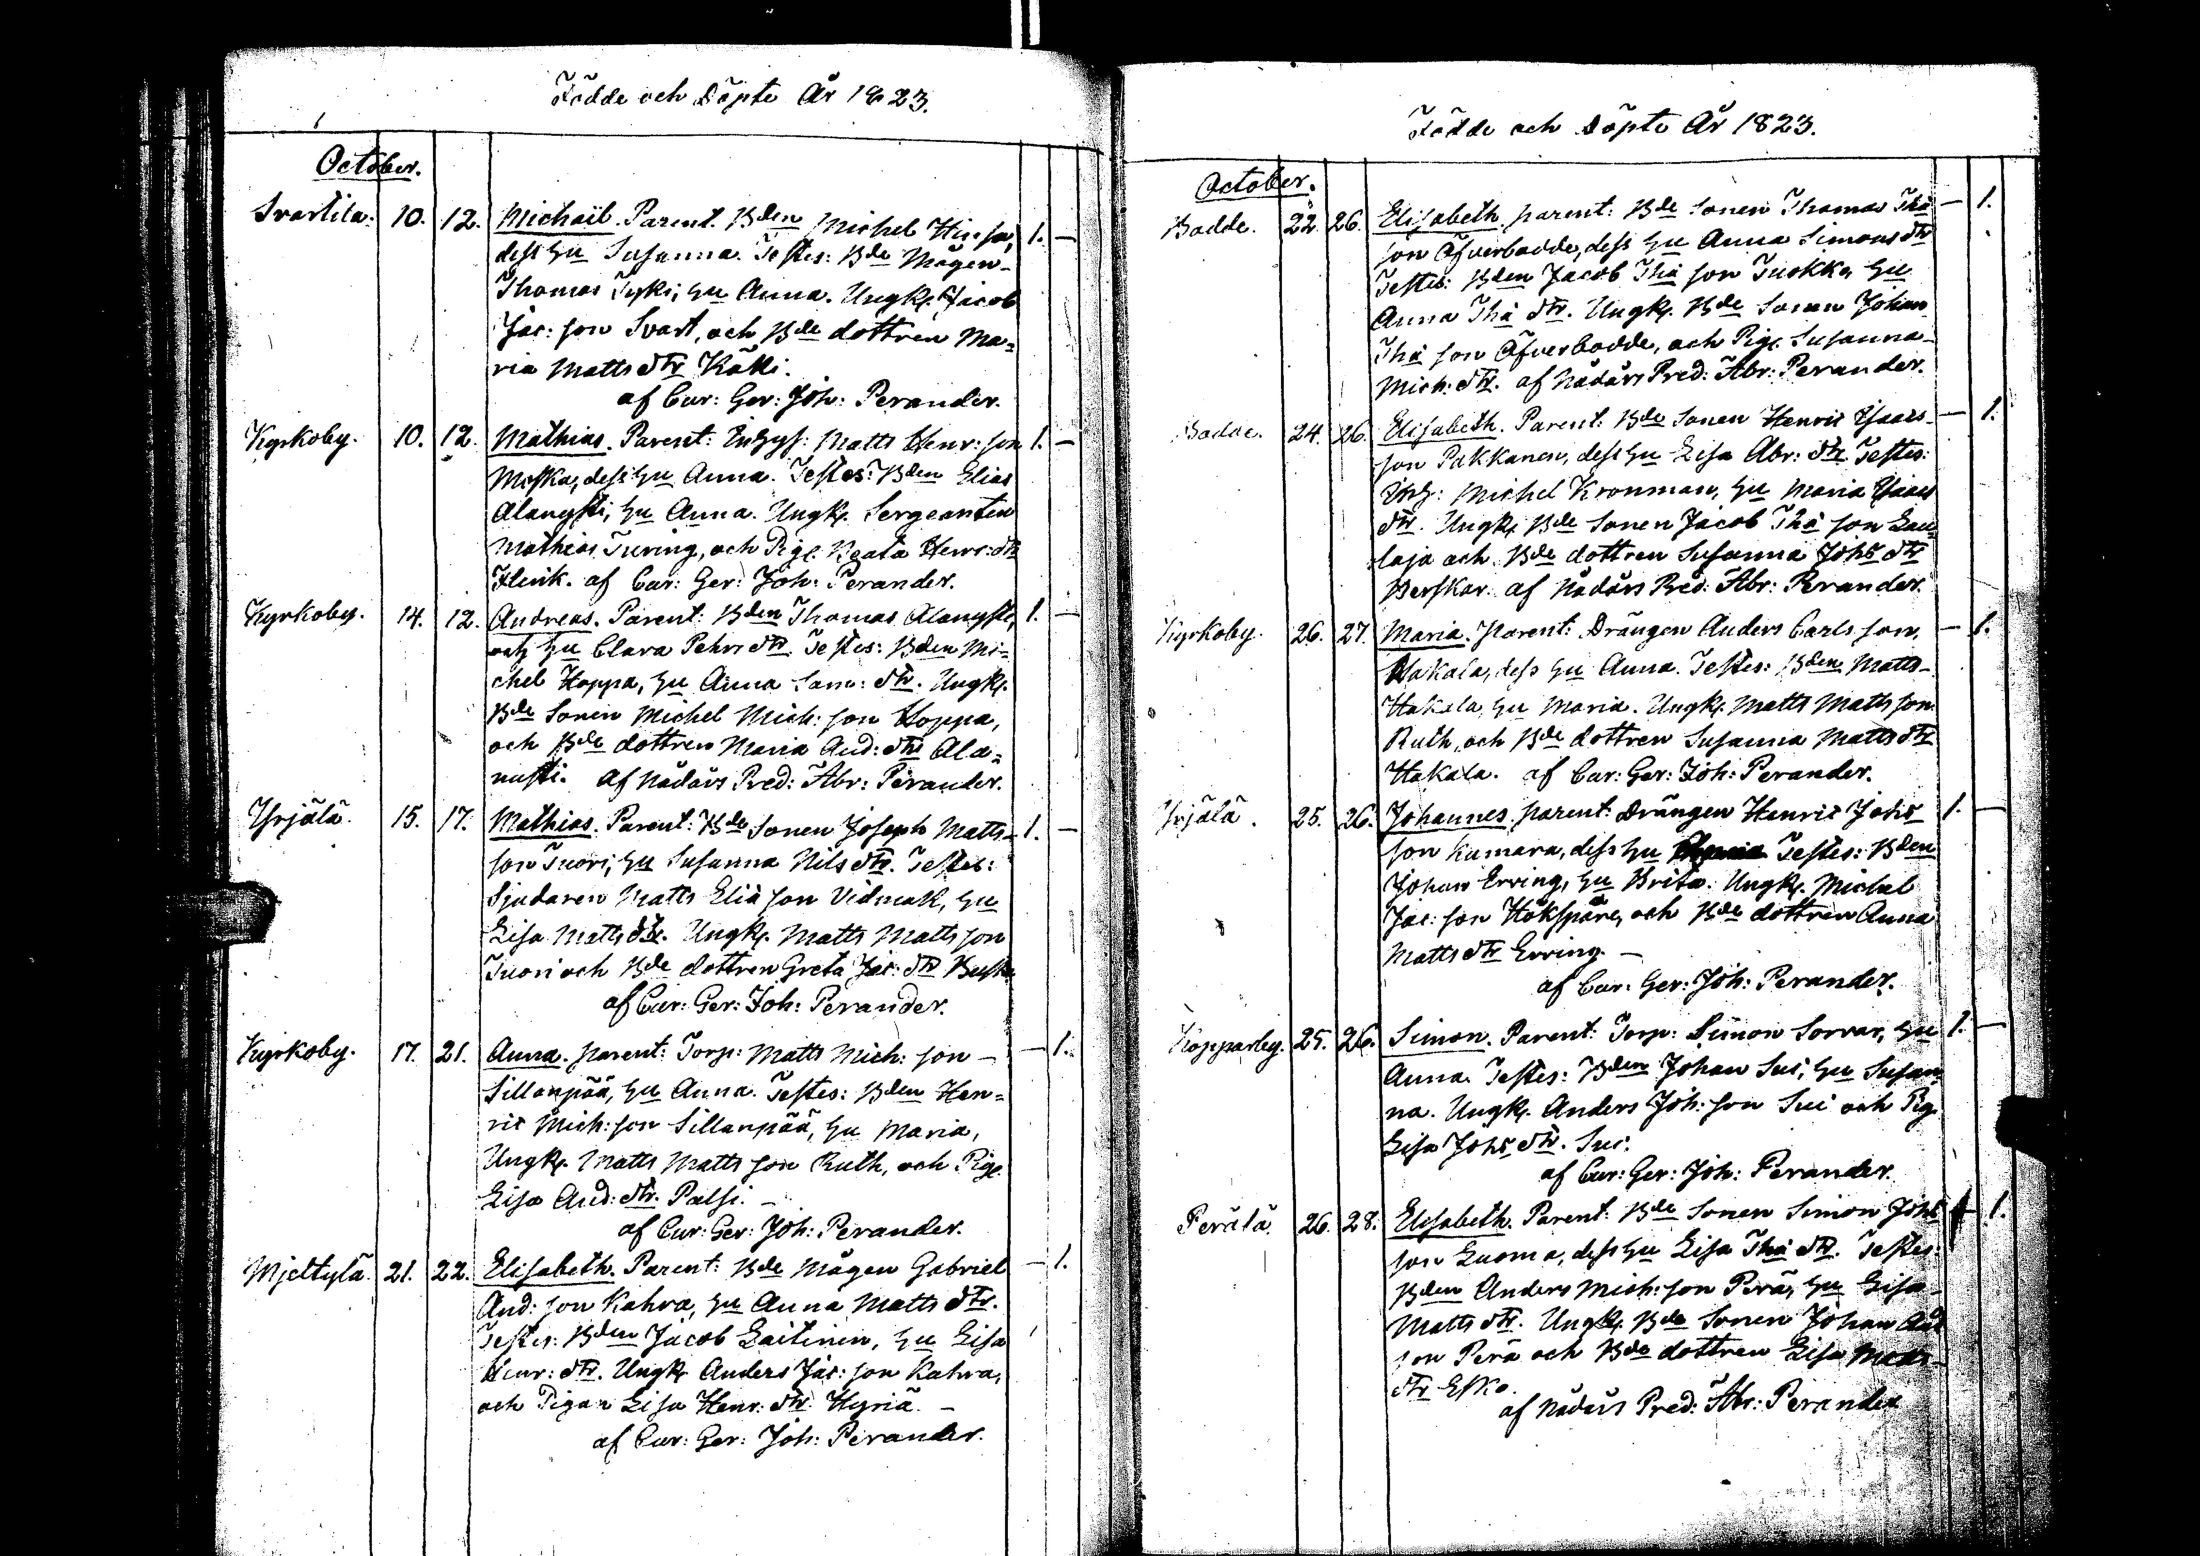 Födde och Döpte År 1823.
October.
Svartila. 10. 12. Michaël. Parent. Bden Michel Hissa, 1. —
dess hu Susanna. Testes: Bde Mågen
Thomas Tyki, hu Anna. Ungk. Jacob
Jac: son Svart, och Bde dottren Ma=
ria Matts dtr Käki.
af Cur: Ger: Joh: Perander.
Kyrkoby. 10. 12. Mathias. Parent: Inhys: Matts Henr: son 1. —
Moska, dess hu Anna. Testes: Bden Elias
Alangsti, hu Anna. Ungk. Sergeanten
Mathias Turing, och Pig. Beata Henr: dtr
Flink. af Cur: Ger: Joh: Perander.
Kyrkoby. 14. 12. Andreas. Parent: Bden Thomas Alangsti, 1. —
och hu Clara Pehrs dtr. Testes: Bden Mi=
chel Hoppa, hu Anna Sam: dtr. Ungk.
Bde Sonen Michel Mich: son Hoppa,
och Bde dottren Maria And: dtr Ala=
nusti. af Nådårs Pred: Abr: Perander.
Yrjälä. 15. 17. Mathias. Parent: Bde Sonen Joseph Matts 1. —
son Tuori, hu Susanna Nils dtr. Testes:
Sjudaren Matts Eliä son Vidmak, hu
Lisa Matts dtr. Ungk. Matts Matts son
Tuori och Bde dottren Greta Jac: dtr
af Cur: Ger: Joh: Perander.
Kyrkoby. 17. 21. Anna. Parent: Torp: Matts Mich: son — — 1.
Sillanpää, hu Anna. Testes: Bden Hen=
ric Mich: son Sillanpää, hu Maria,
Ungk. Matts Matts son Ruth, och Pig.
Lisa And: dtr. Palsi. —
af Cur: Ger: Joh: Perander.
Mjeltylä. 21. 22. Elisabeth. Parent: Bde Mågen Gabriel — 1.
And: son Kahra, hu Anna Matts dtr.
Testes: Bden Jacob Laitinen, hu Lisa
Henr: dtr. Ungk Anders Jac: son Kahra,
och Pigan Lisa Henr: dtr Hyriä. —
af Cur: Ger: Joh: Perander.
Födde och Döpte År 1823.
October.
Badde. 22. 26. Elisabeth. Parent: Bde Sonen Thomas Thˢ — 1.
son Öfverbodde, dess hu Anna Simons dtr
Testes: Bden Jacob Thˢ son Tuokko, hu
Anna Thˢ dtr. Ungk. Bde Sonen Johan
Thˢ son Öfverbodde, och Pig. Susanna
Mich: dtr. af Nådårs Pred: Abr: Perander.
Badde. 24. 26. Elisabeth. Parent: Bde Sonen Henric Isaacs — 1.
son Pakkanen, dess hu Lisa Abr: dtr Testes:
Inh: Michel Kronman, hu Maria Isaacs
dtr. Ungk. Bde Sonen Jacob Thˢ son Lau
laja och Bde dottren Susanna Johˢ dtr
Berskar. af Nådårs Pred: Abr: Perander.
Kyrkoby. 26. 27. Maria. Parent: Drängen Anders Carls son — 1.
Hakala, dess hu Anna. Testes: Bden Matts
Hakala, hu Maria. Ungk. Matts Matts son
Ruth, och Bde dottren Susanna Matts dtr
Hakala. af Cur: Ger: Joh: Perander.
Yrjälä. 25. 26. Johannes. Parent: Drängen Henric Johˢ 1. —
son Kumara, dess hu Testes: Bden
Johan Erving, hu Brita. Ungk. Michel
Jac: son Hökspäre, och Bde dottren Anna
Matts dtr Erving. —
af Cur: Ger: Joh: Perander.
Kopparby. 25. 26. Simon. Parent: Torp: Simon Sorvar, hu 1. —
Anna. Testes: Bden Johan Sui, hu Susan
na. Ungk. Anders Joh: son Sui och Pig
Lisa Johˢ dtr. Sui.
af Cur: Ger: Joh: Perander.
Perälä. 26. 28. Elisabeth. Parent: Bde Sonen Simon Johˢ 1.
son Luoma, dess hu Lisa Thˢ dtr. Testes:
Bden Anders Mich: son Perä, hu Lisa
Matts dtr. Ungk. Bde Sonen Johan And
son Perä och Bde dottren Lisa Matts
dtr Esko.
af Nådårs Pred: Abr: Perander